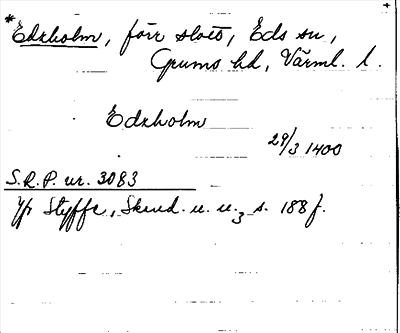 *Edsholm, förr slott, Eds sn,
Grums hd, Värml. l.
Edsholm
29/3 1400
S.R.P. nr. 3083
Jfr Styffe, Skand. u. u.3 s. 188 f.